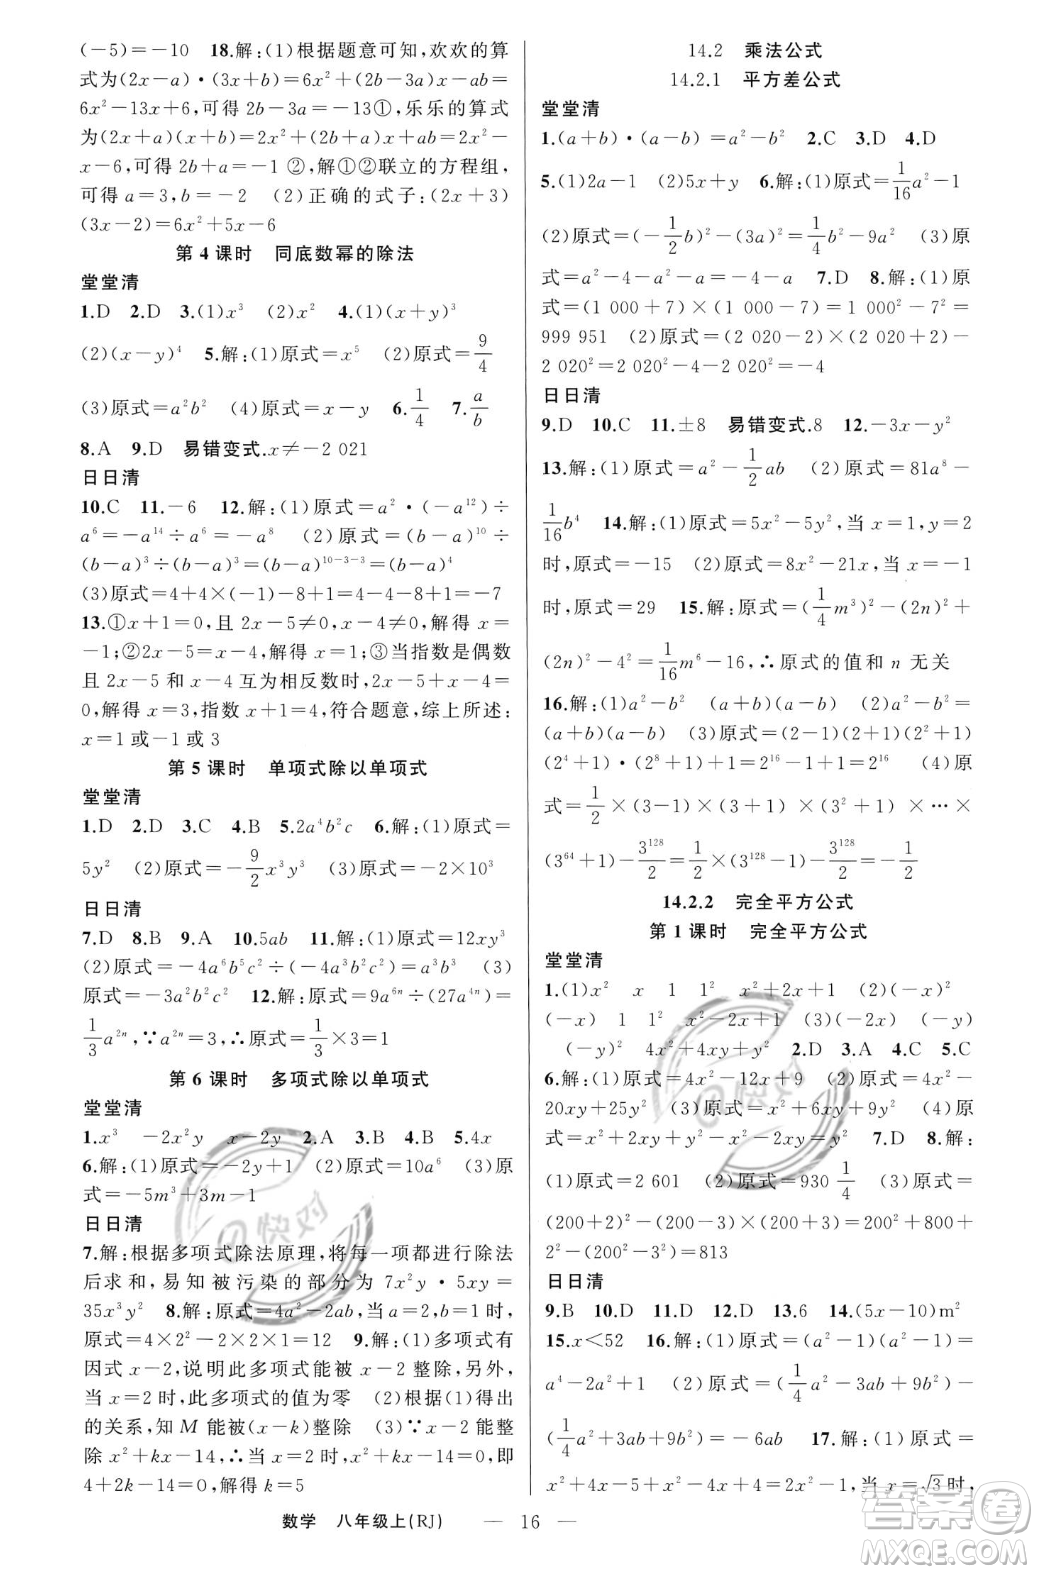 (-5)=-10　18.解:(1)根据题意可知,欢欢的算
式为(2x-a)·(3x+b)=6x²+(2b-3a)x-ab=
6x²-13x+6,可得 2b-3a=-13①,乐乐的算式
为(2x+a)(x+b)=2x²+(2b+a)x+ab=2x²-
x-6,可得 2b+a=-1 ②,解①②联立的方程组,
可得 a=3,b=-2　(2)正确的式子:(2x+3)
(3x-2)=6x²+5x-6
第 4 课时　同底数幂的除法
堂堂清
1.D　2.D　3.(1)x³　(2)x²　4.(1)(x+y)³
(2)(x-y)⁴　5.解:(1)原式=x⁵　(2)原式=9/4
(3)原式=a²b²　(4)原式=x-y　6.1/4　7.a/b
8.A　9.D　易错变式.x≠-2 021
日日清
10.C　11.-6　12.解:(1)原式=a²·(-a¹²)÷
a⁶=-a¹⁴÷a⁶=-a⁸　(2)原式=(b-a)¹⁰÷
(b-a)³÷(b-a)³=(b-a)¹⁰⁻³⁻³=(b-a)⁴
(3)原式=4+4×(-1)-8+1=4-4-8+1=-7
13.①x+1=0,且 2x-5≠0,x-4≠0,解得 x=
-1;②2x-5=x-4,解得 x=1;③当指数是偶数
且 2x-5 和 x-4 互为相反数时,2x-5+x-4=
0,解得 x=3,指数 x+1=4,符合题意,综上所述:
x=1 或-1 或 3
第 5 课时　单项式除以单项式
堂堂清
1.D　2.D　3.C　4.B　5.2a⁴b²c　6.解:(1)原式=
5y²　(2)原式=-9/2x³y³　(3)原式=-2×10³
日日清
7.D　8.B　9.A　10.5ab　11.解:(1)原式=12xy³
(2)原式=-4a⁶b⁵c²÷(-4a³b²c)=a³b³c　(3)
原式=-3a²b²c²　12.解:原式=9a⁶ⁿ÷(27a⁴ⁿ)=
1/3a²ⁿ,∵a²ⁿ=3,∴原式=1/3×3=1
第 6 课时　多项式除以单项式
堂堂清
1.x³　-2x²y　x-2y　2.A　3.B　4.B　5.4x
6.解:(1)原式=-2y+1　(2)原式=10a⁶　(3)原
式=-5m³+3m-1
日日清
7.解:根据多项式除法原理,将每一项都进行除法
后求和,易知被污染的部分为 7x²y·5xy=
35x³y²　8.解:原式=4a²-2ab,当 a=2,b=1时,
原式=4×4-2×2×1=12　9.解:(1)多项式有
因式 x-2,说明此多项式能被 x-2 整除,
当 x=2 时,此多项式的值为零　(2)根据(1)得出
的关系,知 M 能被(x-k)整除　(3)∵x-2 能整
除 x²+kx-14,∴当 x=2 时,x²+kx-14=0,即
4+2k-14=0,解得 k=5
14.2　乘法公式
14.2.1　平方差公式
堂堂清
1.(a+b)·(a-b)=a²-b²　2.C　3.D　4.D
5.(1)2a-1　(2)5x+y　6.解:(1)原式=1/16a²-1
(2)原式=(-1/2b)²-(3a)²=1/4b²-9a²　(3)原
式=a²-4-a²-a=-4-a　7.D　8.解:(1)原
式=(1 000+7)×(1 000-7)=1 000²-7²=
999 951　(2)原式=(2 020-2)×(2 020+2)-
2 020²=2 020²-4-2 020²=-4
日日清
9.D　10.C　11.±8　易错变式.8　12.-3x-y²
13.解:(1)原式=a²-1/2ab　(2)原式=81a⁸-
1/16b⁴　14.解:(1)原式=5x²-5y²,当 x=1,y=2
时,原式=-15　(2)原式=8x²-21x,当 x=-1
时,原式=29　15.解:原式=(1/4m³)²-(2n)²+
(2n)²-4²=1/16m⁶-16,∴原式的值和 n 无关
16.解:(1)a²-b²　(a+b)(a-b)　(2)a²-b²=
(a+b)(a-b)　(3)原式=(2-1)(2+1)(2²+1)
(2⁴+1)·(2⁸+1)+1=2¹⁶-1+1=2¹⁶　(4)原
式=1/2×(3-1)×(3+1)×(3²+1)×…×
(3⁶⁴+1)-3¹²⁸/2=1/2×(3¹²⁸-1)-3¹²⁸/2=-1/2
14.2.2　完全平方公式
第 1 课时　完全平方公式
堂堂清
1.(1)x²　x　1　1²　x²+2x+1　(2)(-x)²
(-x)　1　1²　x²-2x+1　(3)(-2x)　(-y)
(-y)²　4x²+4xy+y²　2.D　3.A　4.C　5.C
6.解:(1)原式=4x²-12x+9　(2)原式=4x²-
20xy+25y²　(3)原式=x²+6xy+9y²　(4)原
式=x²+2xy+y²-2xy=x²+y²　7.D　8.解:
(1)原式=2 601　(2)原式=930 1/4　(3)原式=
(200+2)²-(200-3)×(200+3)=200²+800+
2²-(200²-3²)=813
日日清
9.B　10.D　11.D　12.D　13.6　14.(5x-10)m²
15.x<52　16.解:(1)原式=(a²-1)(a²-1)=
a⁴-2a²+1　(2)原式=(1/4a²-3ab+9b²)-
(1/4a²+3ab+9b²)=-6ab　17.解:(1)原式=
x²+4x+5-x²+4x+4=2x²-1,当 x=√3时,
数学　八年级上(RJ)　— 16 —
答案圈
MXQE.COM
快对
快对